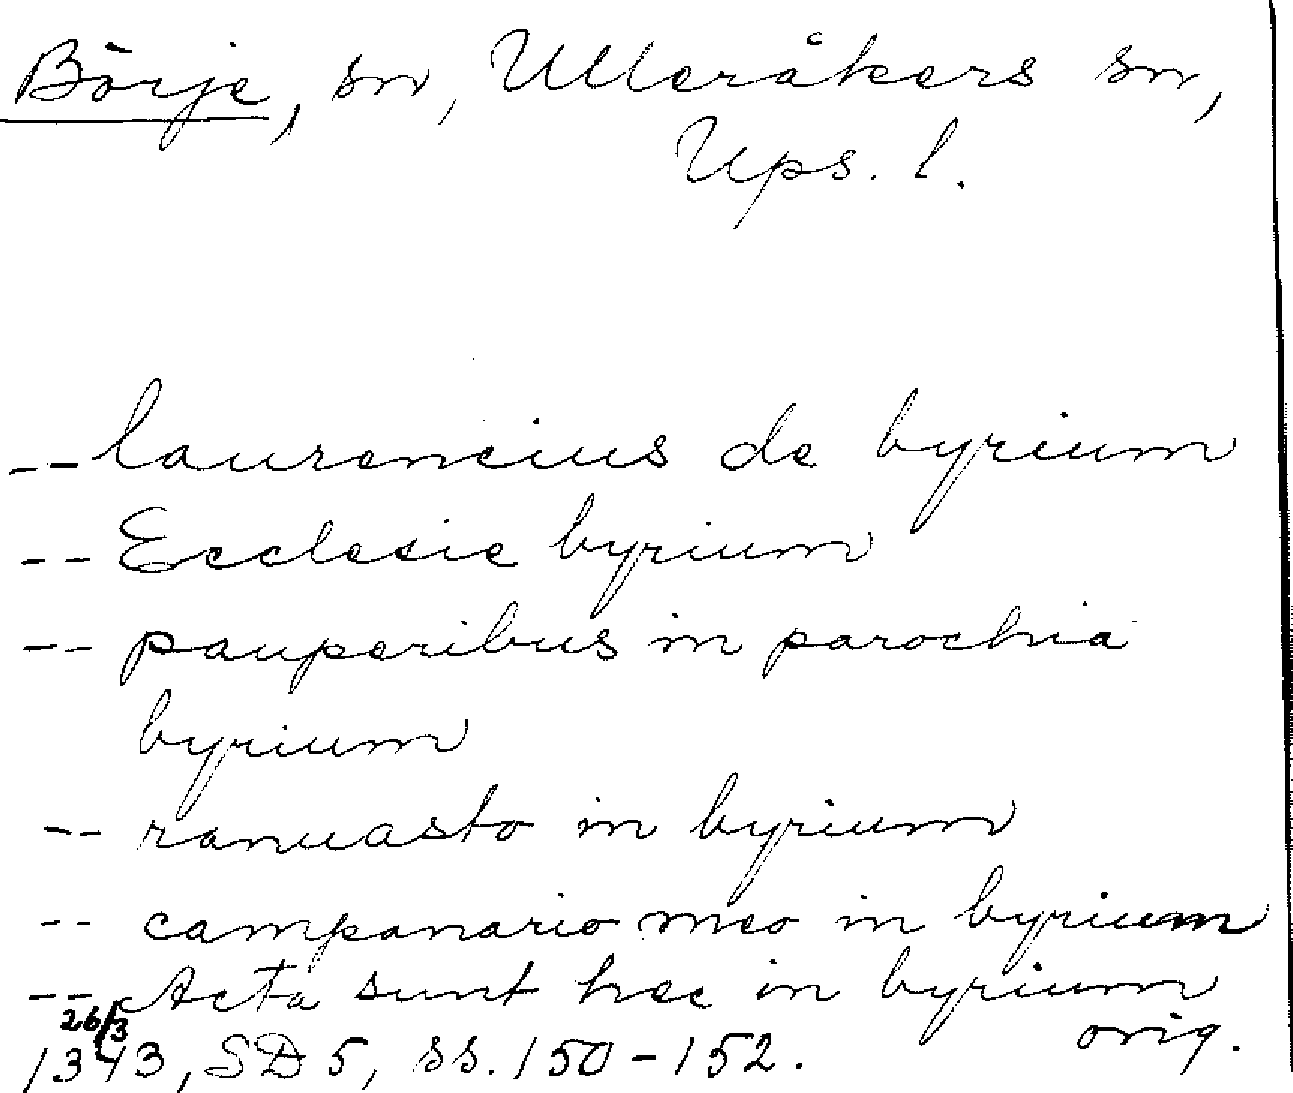 Börje, sn, Ulleråkers sn,
Ups. l.
-- laurencius de byrium
-- Ecclesie byrium
-- pauperibus in parochia
byrium
-- ranuasto in byrium
-- campanario meo in byrium
-- Acta sunt hec in byrium
26/3 orig.
1343, SD 5, ss. 150-152.